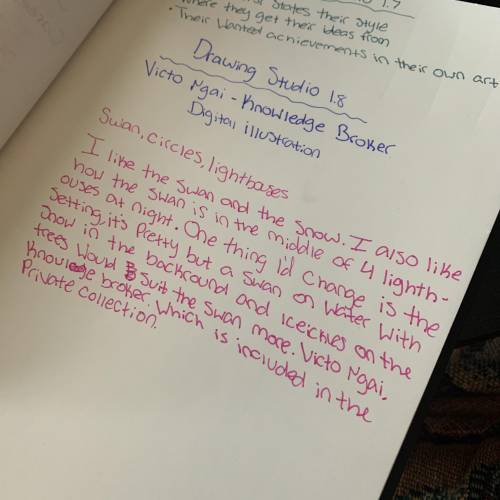 1.7
States their style
where they get their ideas from
• Their Wanted achievements in their own art
Drawing Studio 1.8
Victo Ngai - Knowledge Broker
Digital illustration
Swan, circles, lightbases
I like the Swan and the Snow. I also like
how the swan is in the middle of 4 lighth-
ouses at night. One thing I'd change is the
Setting, it's Pretty but a Swan on Water With
Snow in the backround and iceickles on the
trees Would Suit the Swan more. Victo Ngai.
Knowledge broker. Which is included in the
Private collection.